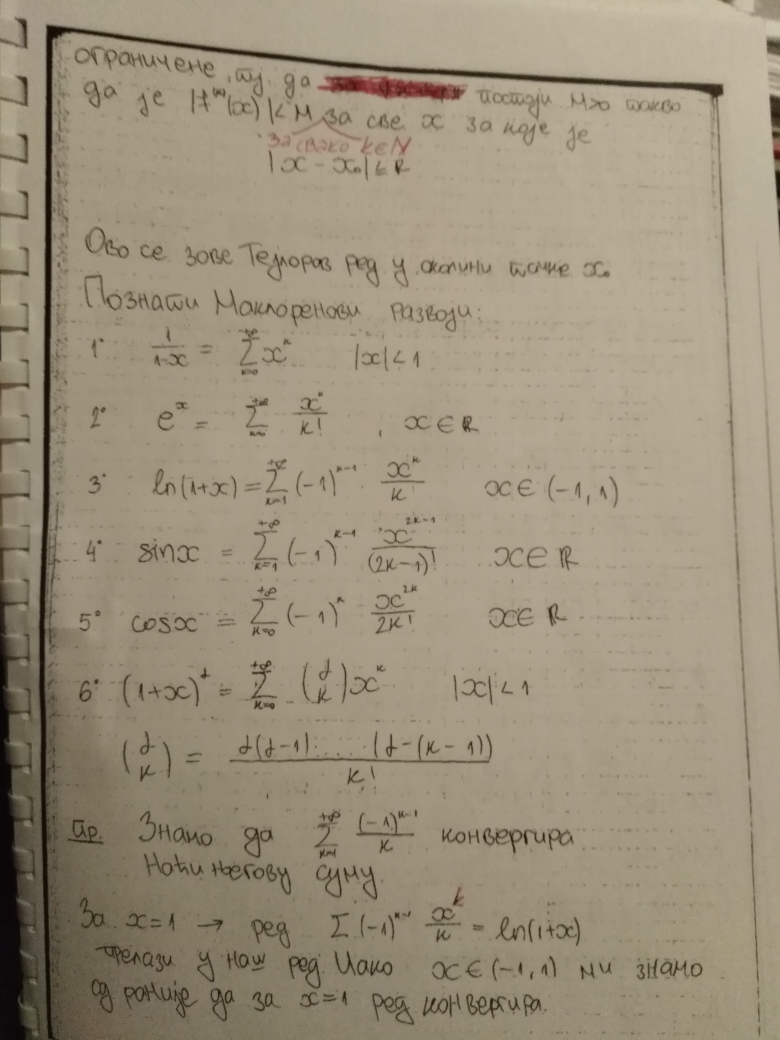 ограничене, тј. да постоји M>0 такво
да је |f⁽ᵏ⁾(x)| < M за све x за које је
За свако k∈N
|x - x₀| < R
Ово се зове Тејлоров ред у околини тачке x₀
Познати Маклоренови развоји:
1° 1/(1-x) = ∑_{k=0}^{+∞} x^k |x| < 1
2° e^x = ∑_{k=0}^{+∞} x^k/k! , x ∈ R
3° ln(1+x) = ∑_{k=1}^{+∞} (-1)^{k-1} x^k/k x ∈ (-1, 1)
4° sinx = ∑_{k=1}^{+∞} (-1)^{k-1} x^{2k-1}/(2k-1)! x ∈ R
5° cosx = ∑_{k=0}^{+∞} (-1)^k x^{2k}/2k! x ∈ R
6° (1+x)^α = ∑_{k=0}^{+∞} (α k) x^k |x| < 1
(α k) = α(α-1)·.....(α-(k-1))/k!
Пр. Знамо да ∑_{k=1}^{+∞} (-1)^{k-1}/k конвергира
Наћи његову суму.
За x=1 → ред ∑(-1)^{k-1} x^k/k = ln(1+x)
прелази у наш ред. Иако x ∈ (-1, 1) ми знамо
од раније да за x=1 ред конвергира.